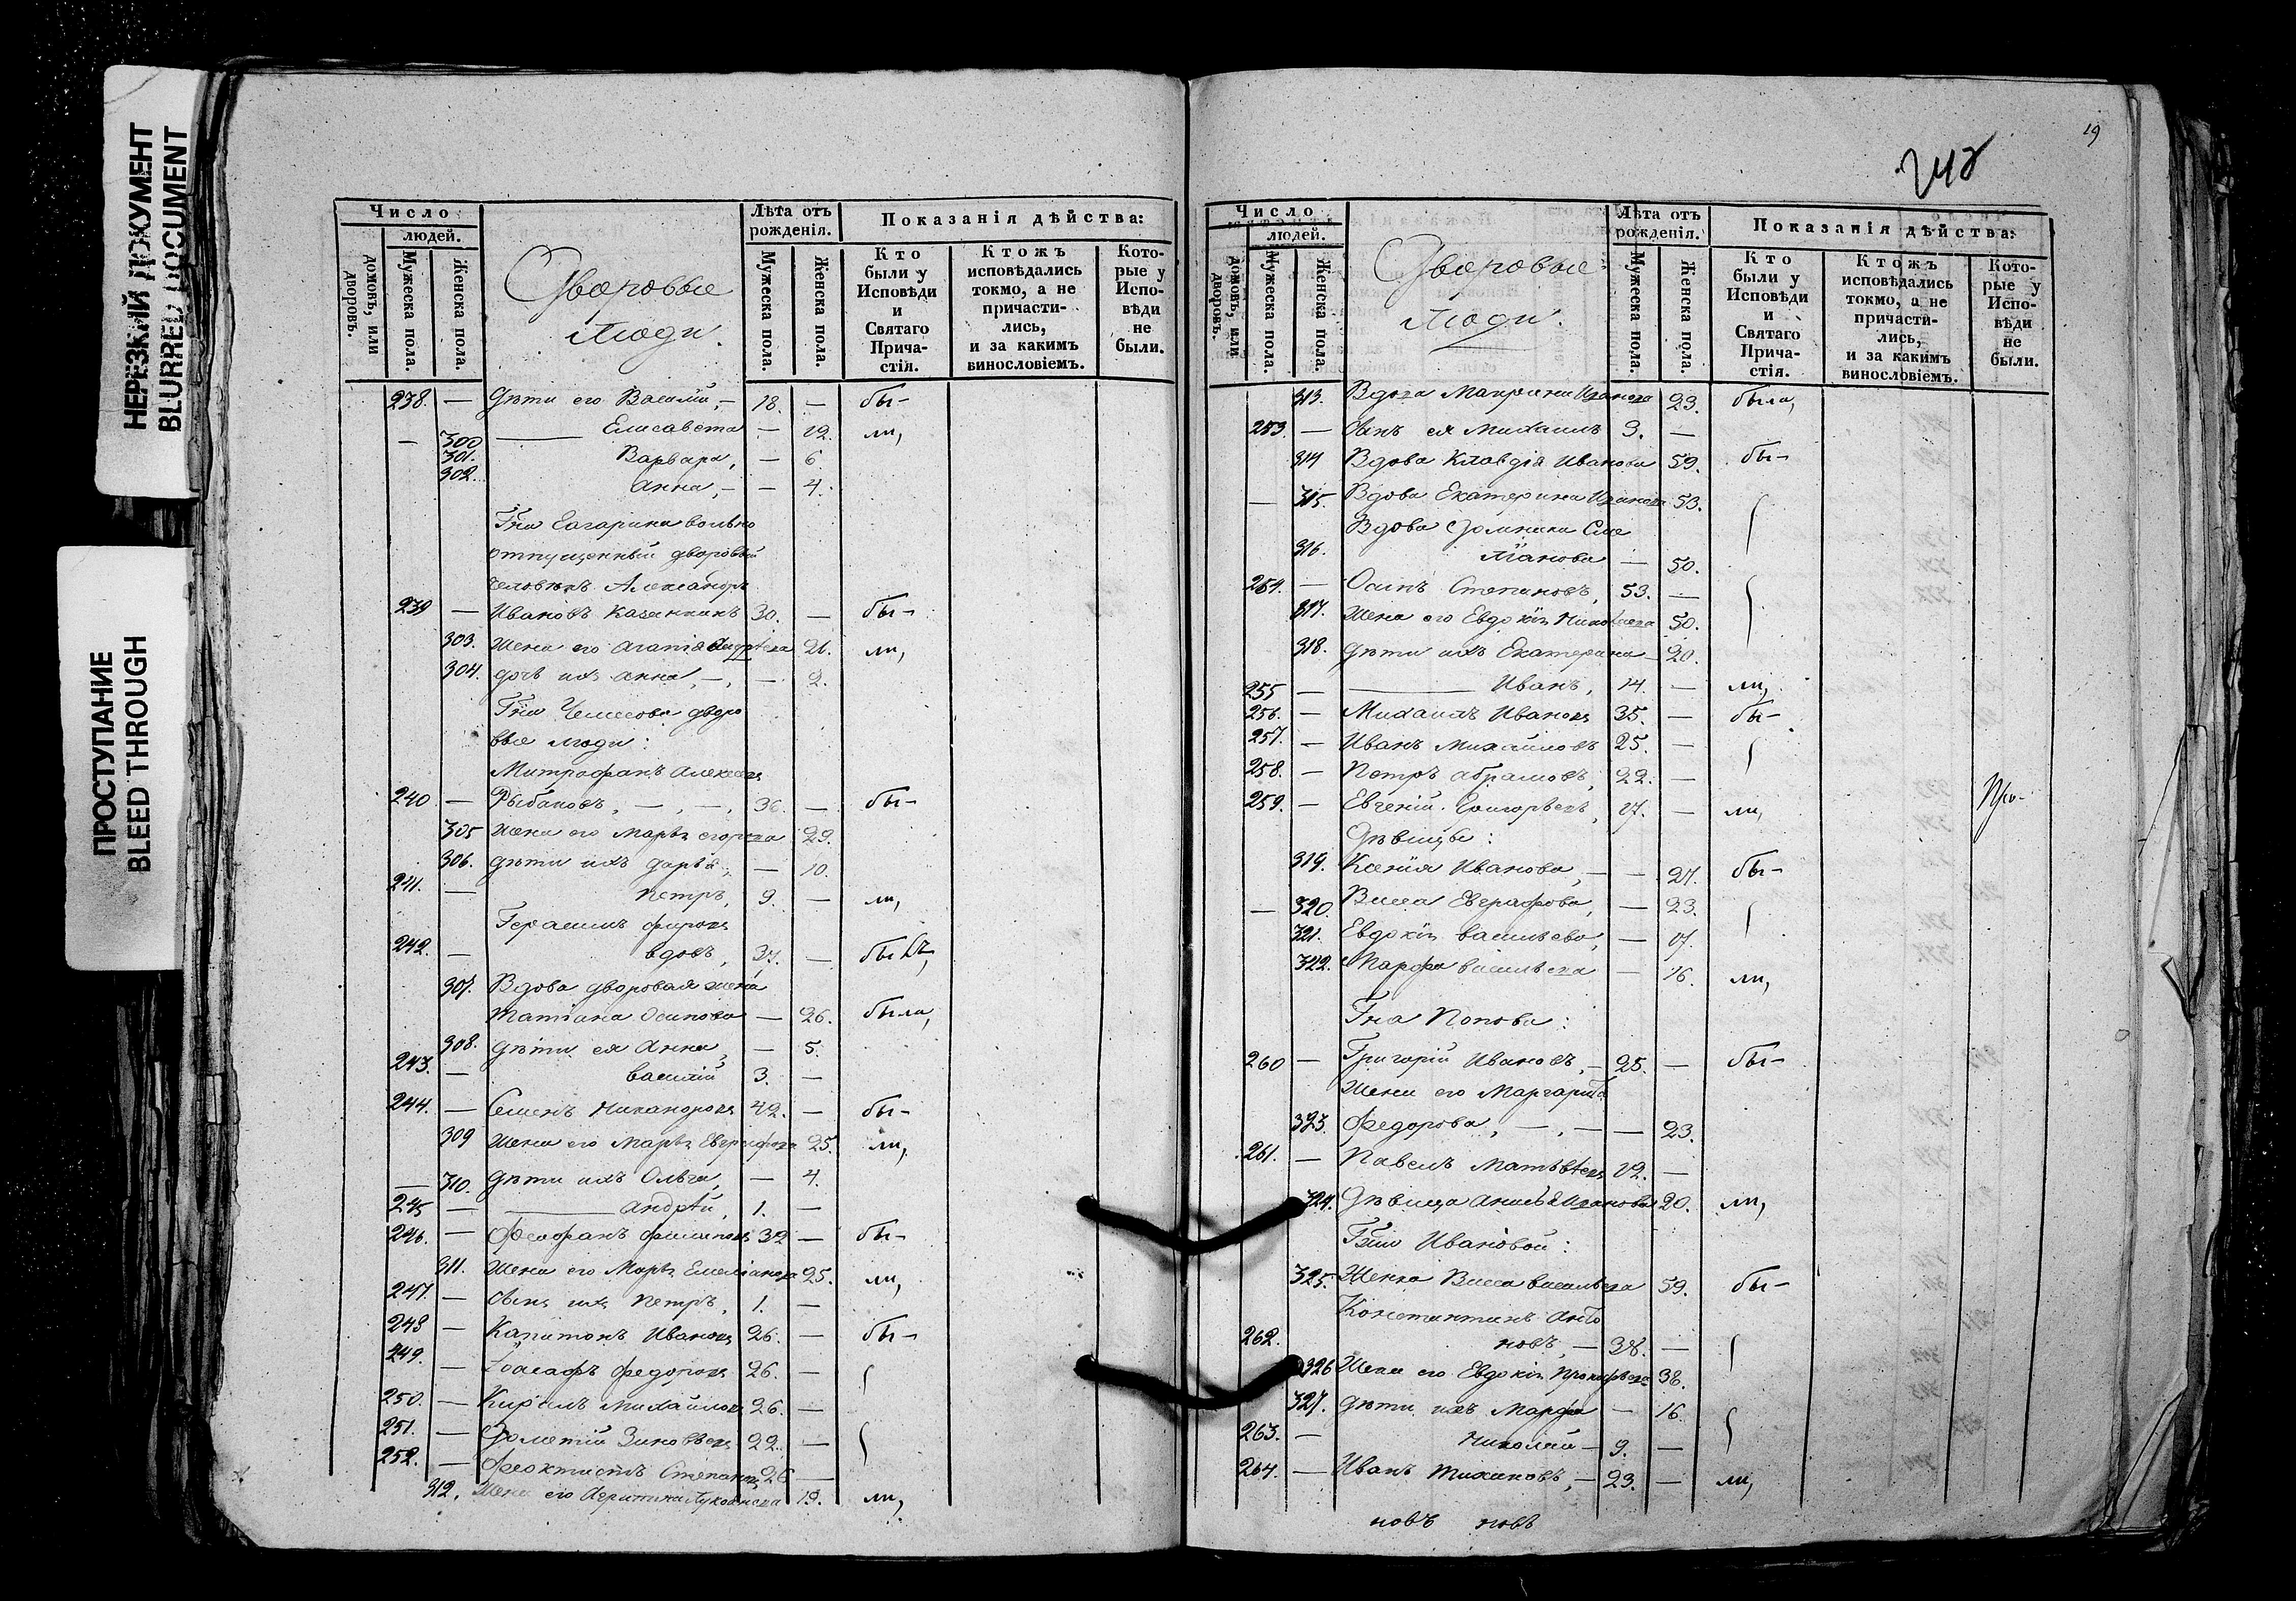 НЕРЕЗКИЙ ДОКУМЕНТ
BLURRED DOCUMENT
ПРОСТУПАНИЕ
BLEED THROUGH
Число
людей.
домовъ, или дворовъ.
Мужеска пола.
Женска пола.
Дворовые
люди.
Лѣта отъ
рожденія.
Мужеска пола.
Женска пола.
Показанія дѣйства:
Кто были у Исповѣди и Святаго Прича-стія.
Ктожъ исповѣдались токмо, а не причасти-лись, и за какимъ винословіемъ.
Кото-рые у Испо-вѣди не были.
238. — Дѣти его Василій, — 18. — бы-
— 300 —— Елисавета — 12. ли,
301. Варвара, — 6.
302. Анна, — — 4.
Гна Гагарина вольно
отпущенный дворовый
человѣкъ Александръ
239 — Ивановъ Казанкинъ 30. — бы-
303. Жена его Агапія Андрѣева 21. ли,
304. дочь ихъ Анна, —, — 2.
Гна Чемесова дворо
вые люди:
Митрофанъ Алексѣевъ
240 — Рыбаковъ, —, —, 36. — бы-
305 Жена его Марья Егорова 29.
306. дѣти ихъ Дарья, — 10.
241. — Петръ, 9. — ли,
Герасимъ
242. — вдовъ, 37. — былъ,
307. Вдова дворовая жена
Татіана Осипова — 26. была,
308. дѣти ея Анна, — 5.
243. — Василій 3. —
244. — Семенъ Никаноровъ 42. — бы-
309 Жена его Марья Евграфова 25. ли,
— 310. дѣти ихъ Ольга, — 4.
245 — —— Андрѣй, 1. —
246. — Феофанъ Филиповъ 32 — бы-
311. Жена его Марья Емеліанова 25. ли,
247. — Сынъ ихъ Петръ, 1. —
248 — Капитонъ Ивановъ 26. — бы-
249. — Іоасафъ Федоровъ 26. —
250. — Кирилъ Михайловъ 26. —
251. — Дометій Зиновьевъ 22. —
252. — Феоктистъ Степановъ 26 —
312. Жена его 19. ли,
19
248
Число
людей.
домовъ, или дворовъ.
Мужеска пола.
Женска пола.
Дворовые
люди.
Лѣта отъ
рожденія.
Мужеска пола.
Женска пола.
Показанія дѣйства:
Кто были у Исповѣди и Святаго Прича-стія.
Ктожъ исповѣдались токмо, а не причасти-лись, и за какимъ винословіемъ.
Кото-рые у Испо-вѣди не были.
313. Вдова Маврина Иванова 23. была,
253. — Сынъ ея Михаилъ 3. —
314 Вдова Клавдія Иванова 59. бы-
— 315. Вдова Екатерина Иванова 53.
Вдова Домника Сме
316. — 50.
254. — Осипъ Степановъ, 53. —
317. Жена его Евдокія Николаева 50.
318. дѣти ихъ Екатерина — 20.
255 — —— Иванъ, 14. — ли,
256. — Михаилъ Ивановъ 35. — бы-
257. — Иванъ Михайловъ 25. —
258. — Петръ Абрамовъ, 22. —
259. — Евгеній Григорьевъ, 17. — ли, Про-
Дѣвицы:
319. Ксенія Иванова, — — 27. бы-
— 320. Васса Евграфова, — 23.
321. Евдокія Васильева, — 17.
322. Марфа Васильева — 16. ли,
Гна Попова:
260 — Григорій Ивановъ, — 25. — бы-
Жена его Маргарита
323. Федорова, —, — — 23.
261. — Павелъ Матвѣевъ 12. —
324. Дѣвица Анисья Иванова 20. ли,
Гжи Ивановой:
325. Женка Васса Васильева 59. бы-
Константинъ Анто
262. новъ, — 38. —
326 Жена его Евдокія Прокофьева 38.
327. дѣти ихъ Марфа — 16.
263. — Николай — 9. —
264. — Иванъ Тихановъ, — 23. — ли,
новъ новъ